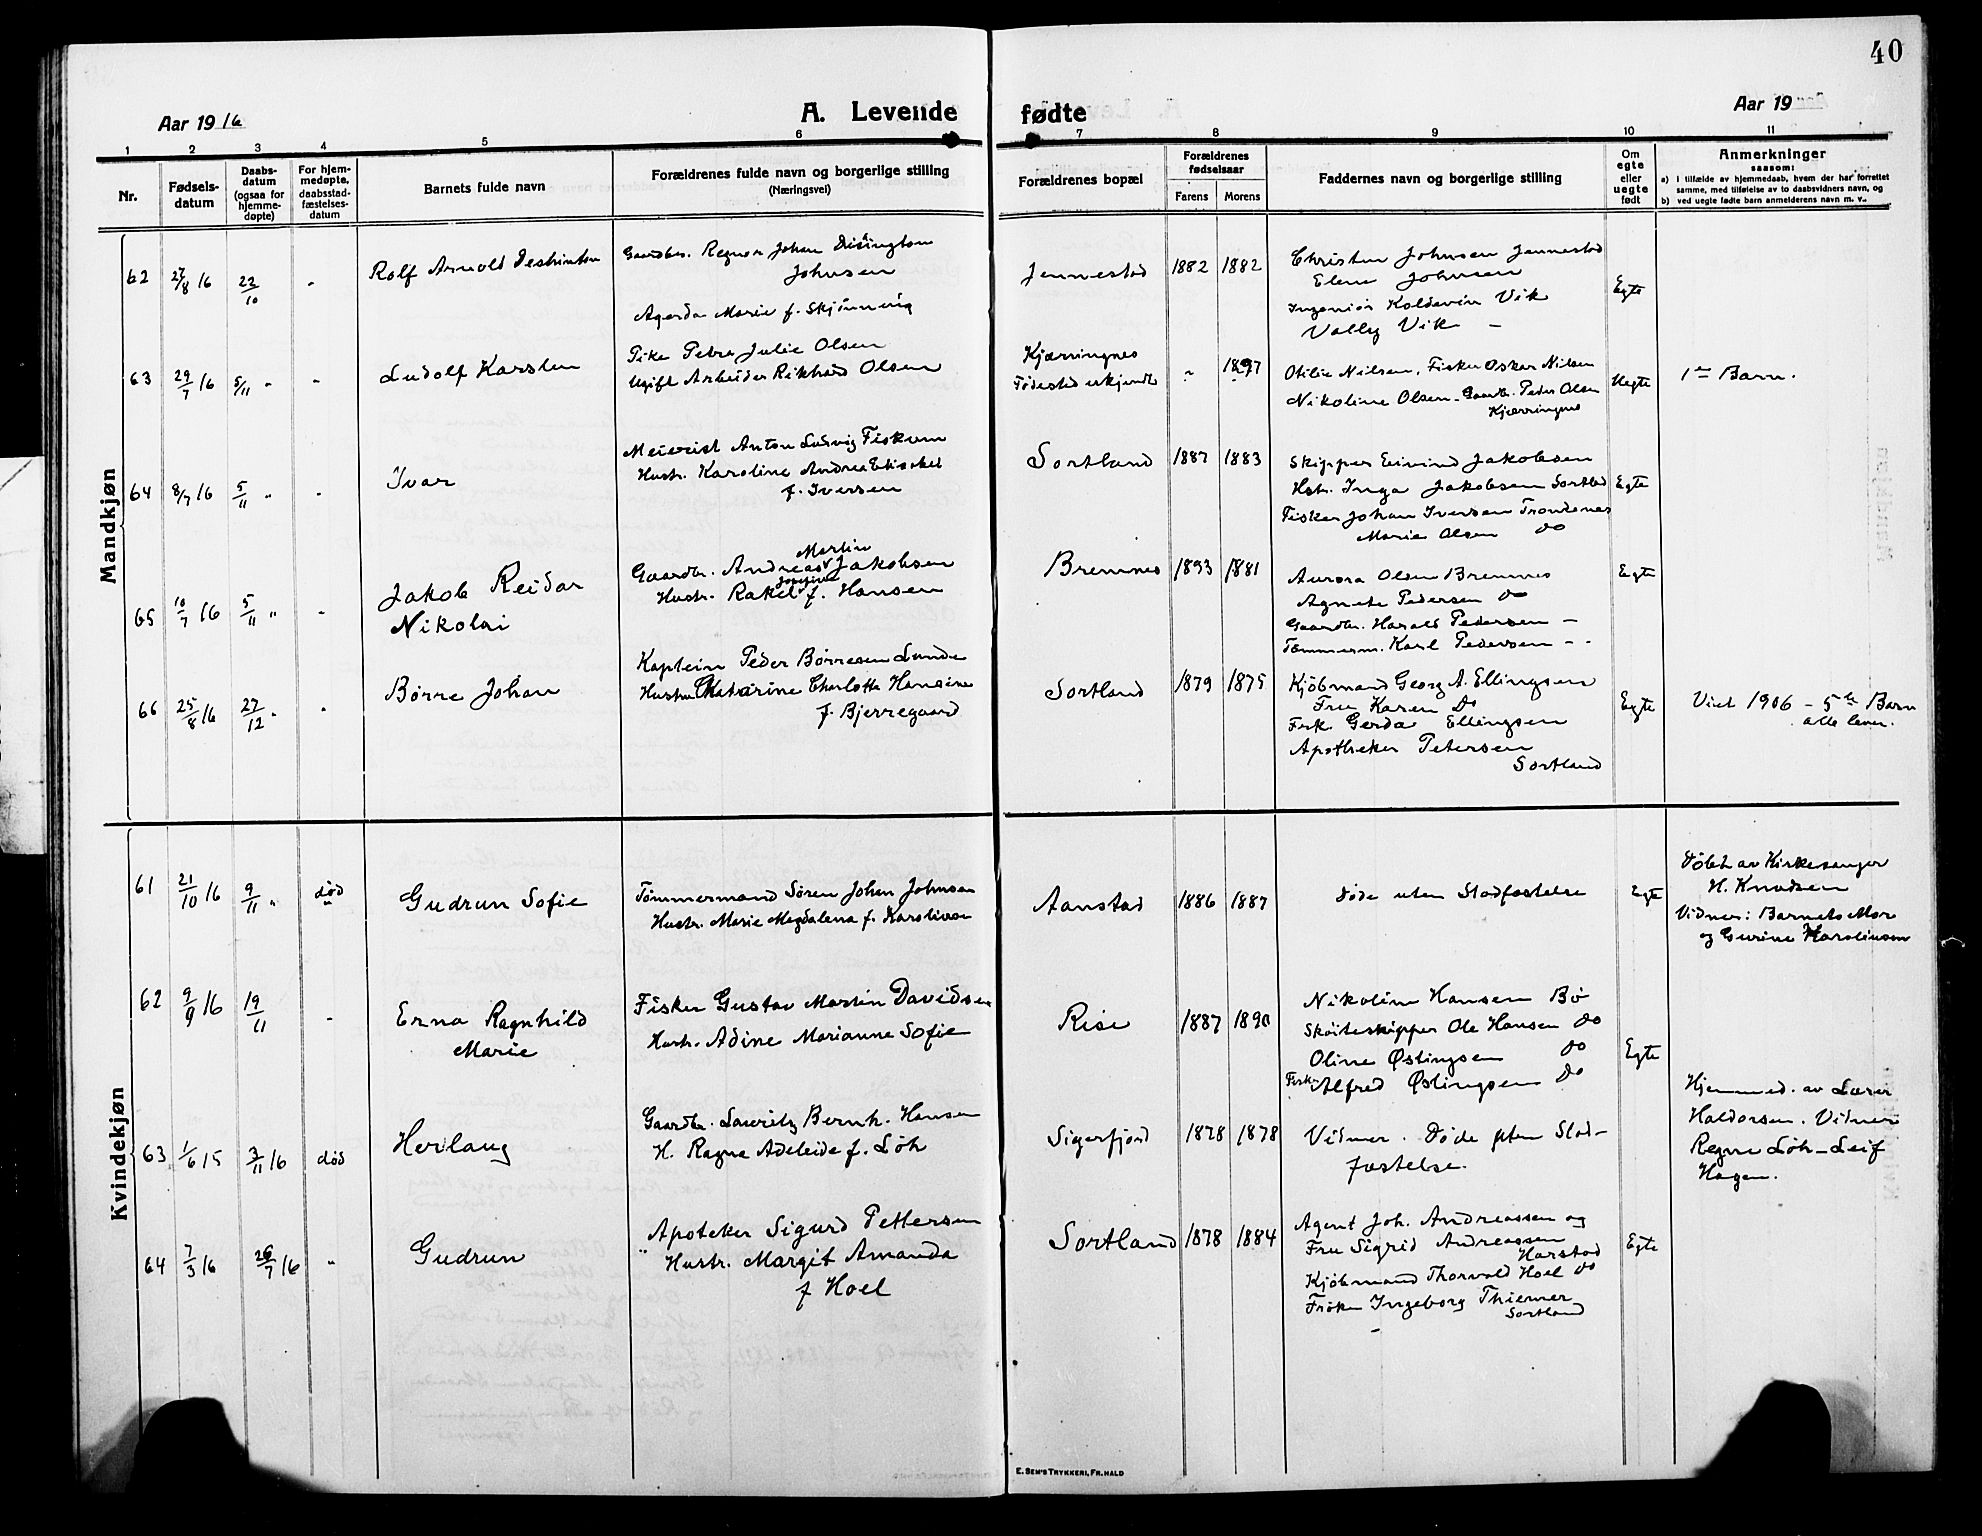 40
Aar 1916
A. Levende fødte
Aar 19
1 2 3 4 5 6 7 8 9 10 11
Nr.
Fødsels-
datum
Daabs-
datum
(ogsaa for
hjemme-
døpte)
For hjem-
medøpte,
daabsstad-
fæstelses-
datum
Barnets fulde navn
Forældrenes fulde navn og borgerlige stilling
(Næringsvei)
Forældrenes bopæl
Forældrenes
fødselsaar
Farens Morens
Faddernes navn og borgerlige stilling
Om
egte
eller
uegte
født
Anmerkninger
saasom:
a) i tilfælde av hjemmedaab, hvem der har forrettet
samme, med tilføielse av to daabsvidners navn, og
b) ved uegte fødte barn anmelderens navn m. v..
Mandkjøn
62 27/8 16 22/10 "
Rolf Arnold
Gaardbr. Regnor Johan
Johnsen
Agerda Marie f. Skjønning
Jennestad 1882 1882
Christen Johnsen Jennestad
Elene Johnsen
Ingeniør Koldevin Vik
Vally Vik –
Egte
63 29/7 16 5/11 " "
Ludolf Karsten
Pike Petra Julie Olsen
Ugift Arbeider Rikhard Olsen
Kjærringnes
Fødested
" 1897
Otilie Nilsen, Fisker Oskar Nilsen
Nikoline Olsen – Gaardb. Peder Olsen
Kjærringnes
Uegte
1ste Barn.
64 8/7 16 5/11 " "
Ivar
Meierist Anton Ludvig Fiskum
Hustr. Karoline Andrea
f. Iversen
Sortland 1887 1883
Skipper Eivind Jakobsen
Hstr. Inga Jakobsen Sortld
Fisker Johan Iversen Trondenes
Marie Olsen do
Egte
65 10/7 16 5/11 " "
Jakob Reidar
Nikolai
Martin
Gaardbr. Andreas v Jakobsen
Hustr. Rakel f. Hansen
Bremnes 1893 1881
Aurora Olsen Bremnes
Agnete Pedersen do
Gaardbr. Harald Pedersen –
Tømmerm. Karl Pedersen – –
Egte
66 25/8 16 27/12 " "
Børre Johan
Kaptein Peder Børresen Lunde
Hustru Katarine Charlotte Hansine
f. Bjerregaard
Sortland 1879 1875
Kjøbmand Georg A. Ellingsen
Fru Karen do
Frk. Gerda Ellingsen
Apotheker Petersen
Sortland
Egte
Viet 1906 – 5te Barn
alle lever.
Kvindekjøn
61 21/10 16 9/11 " død
Gudrun Sofie
Tømmermand Søren Johan Johnsen
Hustr. Marie Magdalena f. Karolius
Aanstad 1886 1887
Døde uten Stadfæstelse
Egte
Døbt av Kirkesanger
H. Knudsen
Vidner: Barnets Mor
og Gurine Karoliusen
62 9/9 16 19/11 "
Erna Ragnhild
Marie
Fisker Gustav Martin Davidsen
Hustr. Adine Marianne Sofie
Rise 1887 1890
Nikoline Hansen Bø
Skøiteskipper Ole Hansen do
Oline Østingsen do
Fisker Alfred Østingsen do
Egte
63 1/6 15 3/11 16 død
Herlaug
Gaardbr. Lauritz Bernh. Hansen
H. Ragna Adeleide f. Löh
Sigerfjord 1878 1878
Vidner. Døde uten Stad-
fæstelse.
Hjemmed. av Lærer
Haldorsen. Vidner
Regne Löh – Leif
Hagen.
64 7/3 16 26/7 16 "
Gudrun
Apoteker Sigurd Pettersen
Hustr. Margit Amanda
f Hoel
Sortland 1878 1884
Agent Joh. Andreassen og
Fru Sigrid Andreassen
Harstad
Kjøbmand Thorvald Hoel do
Frøken Ingeborg Thiemer
Sortland
Egte
E. SEM'S TRYKKERI, FR.HALD